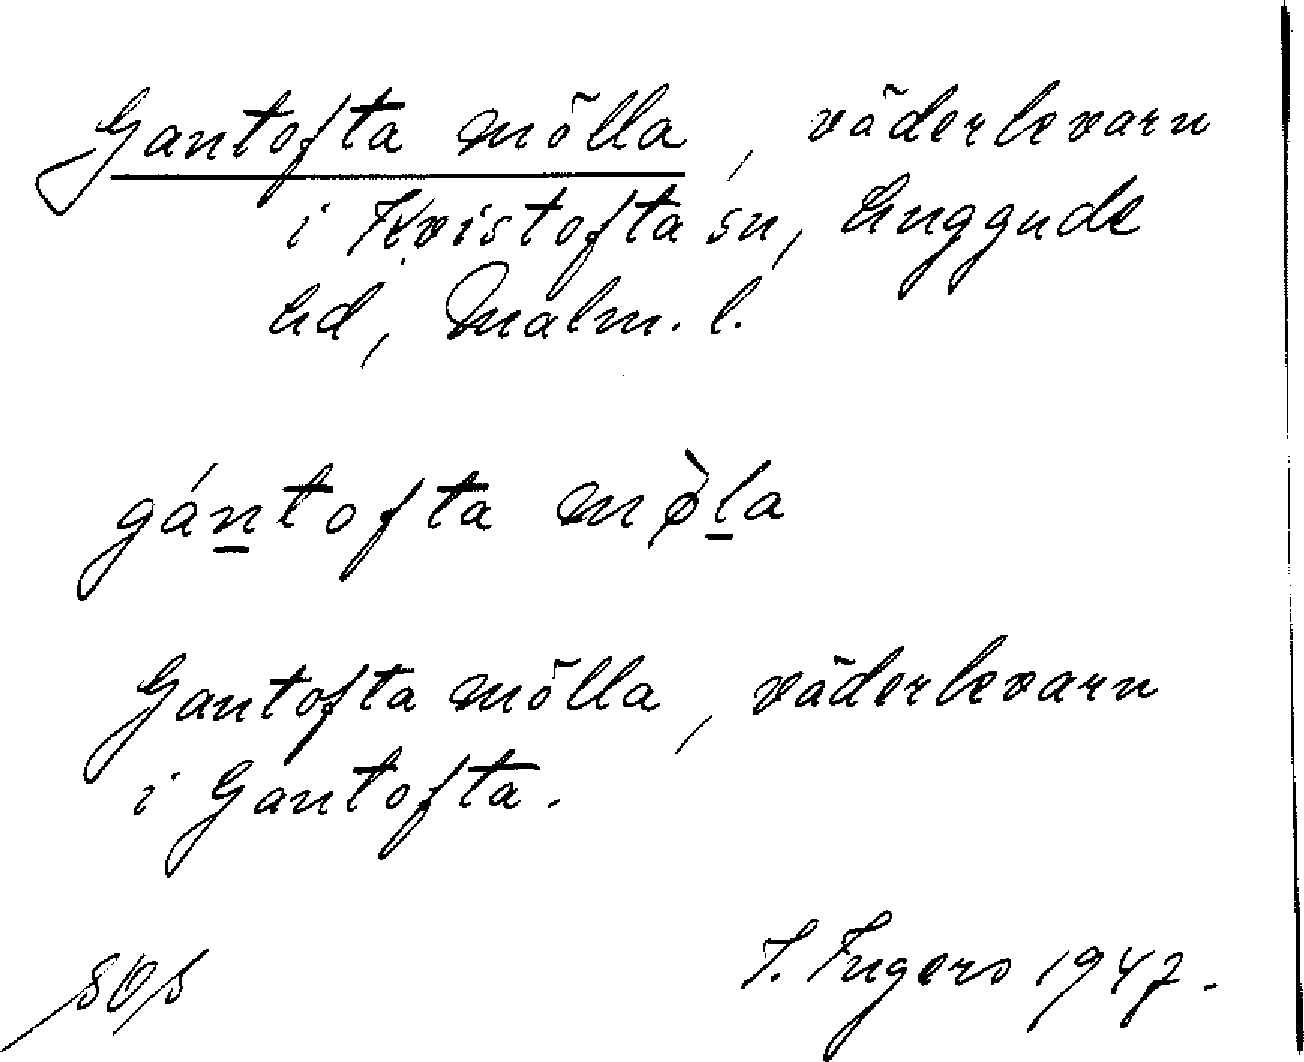 Gantofta mölla, väderkvarn
i Kvistofta sn, Luggude
hd, Malm. l.
gántofta mø̀la
Gantofta mölla, väderkvarn
i Gantofta.
I. Ingers 1947.